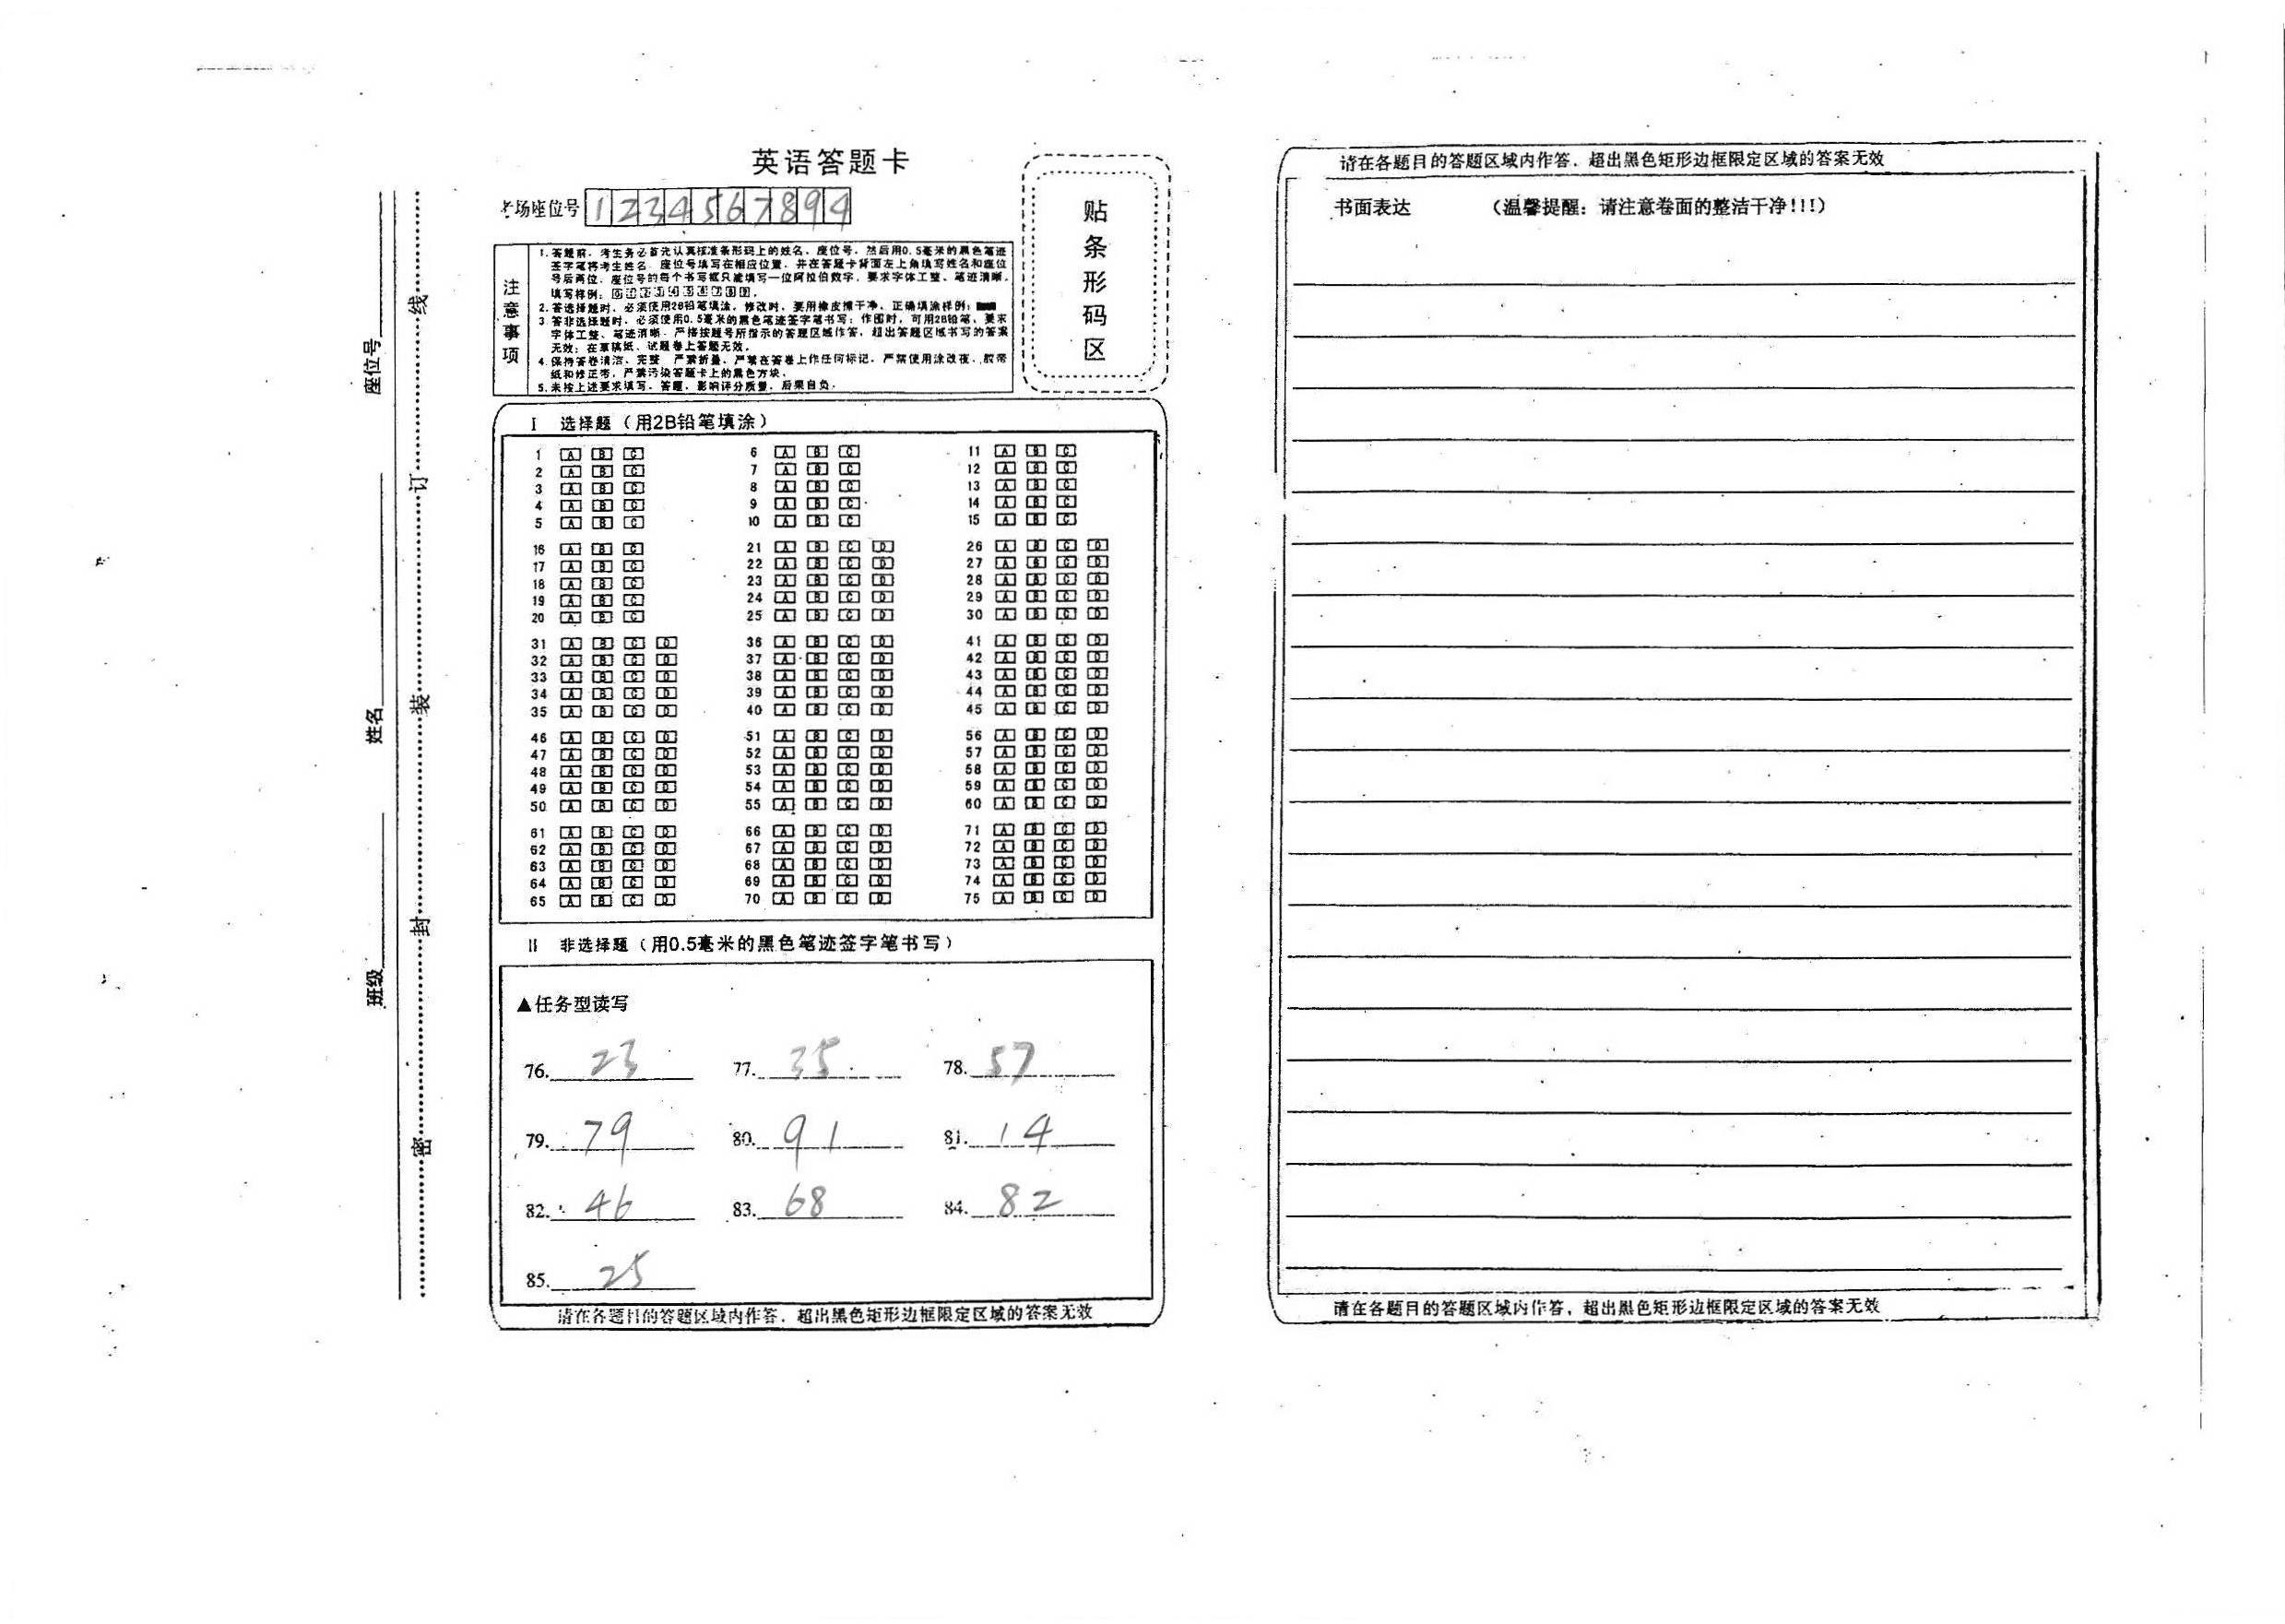 英语答题卡
考场座位号 1 2 3 4 5 6 7 8 9 4
贴条形码区
注意事项
1.答题前,考生务必首先认真核准条形码上的姓名、座位号,然后用0.5毫米的黑色笔迹
签字笔将考生姓名、座位号填写在相应位置,并在答题卡背面左上角填写姓名和座位
号后两位,座位号的每个书写框只能填写一位阿拉伯数字,要求字体工整、笔迹清晰。
填写样例:0 1 2 3 4 5 6 7 8 9。
2.答选择题时,必须使用2B铅笔填涂,修改时,要用橡皮擦干净。正确填涂样例:
3.答非选择题时,必须使用0.5毫米的黑色笔迹签字笔书写;作图时,可用2B铅笔,要求
字体工整、笔迹清晰。严格按题号所指示的答题区域作答,超出答题区域书写的答案
无效;在草稿纸、试题卷上答题无效。
4.保持答卷清洁、完整。严禁折叠,严禁在答卷上作任何标记,严禁使用涂改液、胶带
纸和修正带,严禁污染答题卡上的黑色方块。
5.未按上述要求填写、答题,影响评分质量,后果自负。
座位号
姓名
班级
密 封 装 订 线
I 选择题(用2B铅笔填涂)
1 A B C 6 A B C 11 A B C
2 A B C 7 A B C 12 A B C
3 A B C 8 A B C 13 A B C
4 A B C 9 A B C 14 A B C
5 A B C 10 A B C 15 A B C
16 A B C 21 A B C D 26 A B C D
17 A B C 22 A B C D 27 A B C D
18 A B C 23 A B C D 28 A B C D
19 A B C 24 A B C D 29 A B C D
20 A B C 25 A B C D 30 A B C D
31 A B C D 36 A B C D 41 A B C D
32 A B C D 37 A B C D 42 A B C D
33 A B C D 38 A B C D 43 A B C D
34 A B C D 39 A B C D 44 A B C D
35 A B C D 40 A B C D 45 A B C D
46 A B C D 51 A B C D 56 A B C D
47 A B C D 52 A B C D 57 A B C D
48 A B C D 53 A B C D 58 A B C D
49 A B C D 54 A B C D 59 A B C D
50 A B C D 55 A B C D 60 A B C D
61 A B C D 66 A B C D 71 A B C D
62 A B C D 67 A B C D 72 A B C D
63 A B C D 68 A B C D 73 A B C D
64 A B C D 69 A B C D 74 A B C D
65 A B C D 70 A B C D 75 A B C D
II 非选择题(用0.5毫米的黑色笔迹签字笔书写)
▲任务型读写
76. 23 77. 35 78. 57
79. 79 80. 91 81. 14
82. 46 83. 68 84. 82
85. 25
请在各题目的答题区域内作答,超出黑色矩形边框限定区域的答案无效
请在各题目的答题区域内作答,超出黑色矩形边框限定区域的答案无效
书面表达 (温馨提醒:请注意卷面的整洁干净!!!)
请在各题目的答题区域内作答,超出黑色矩形边框限定区域的答案无效